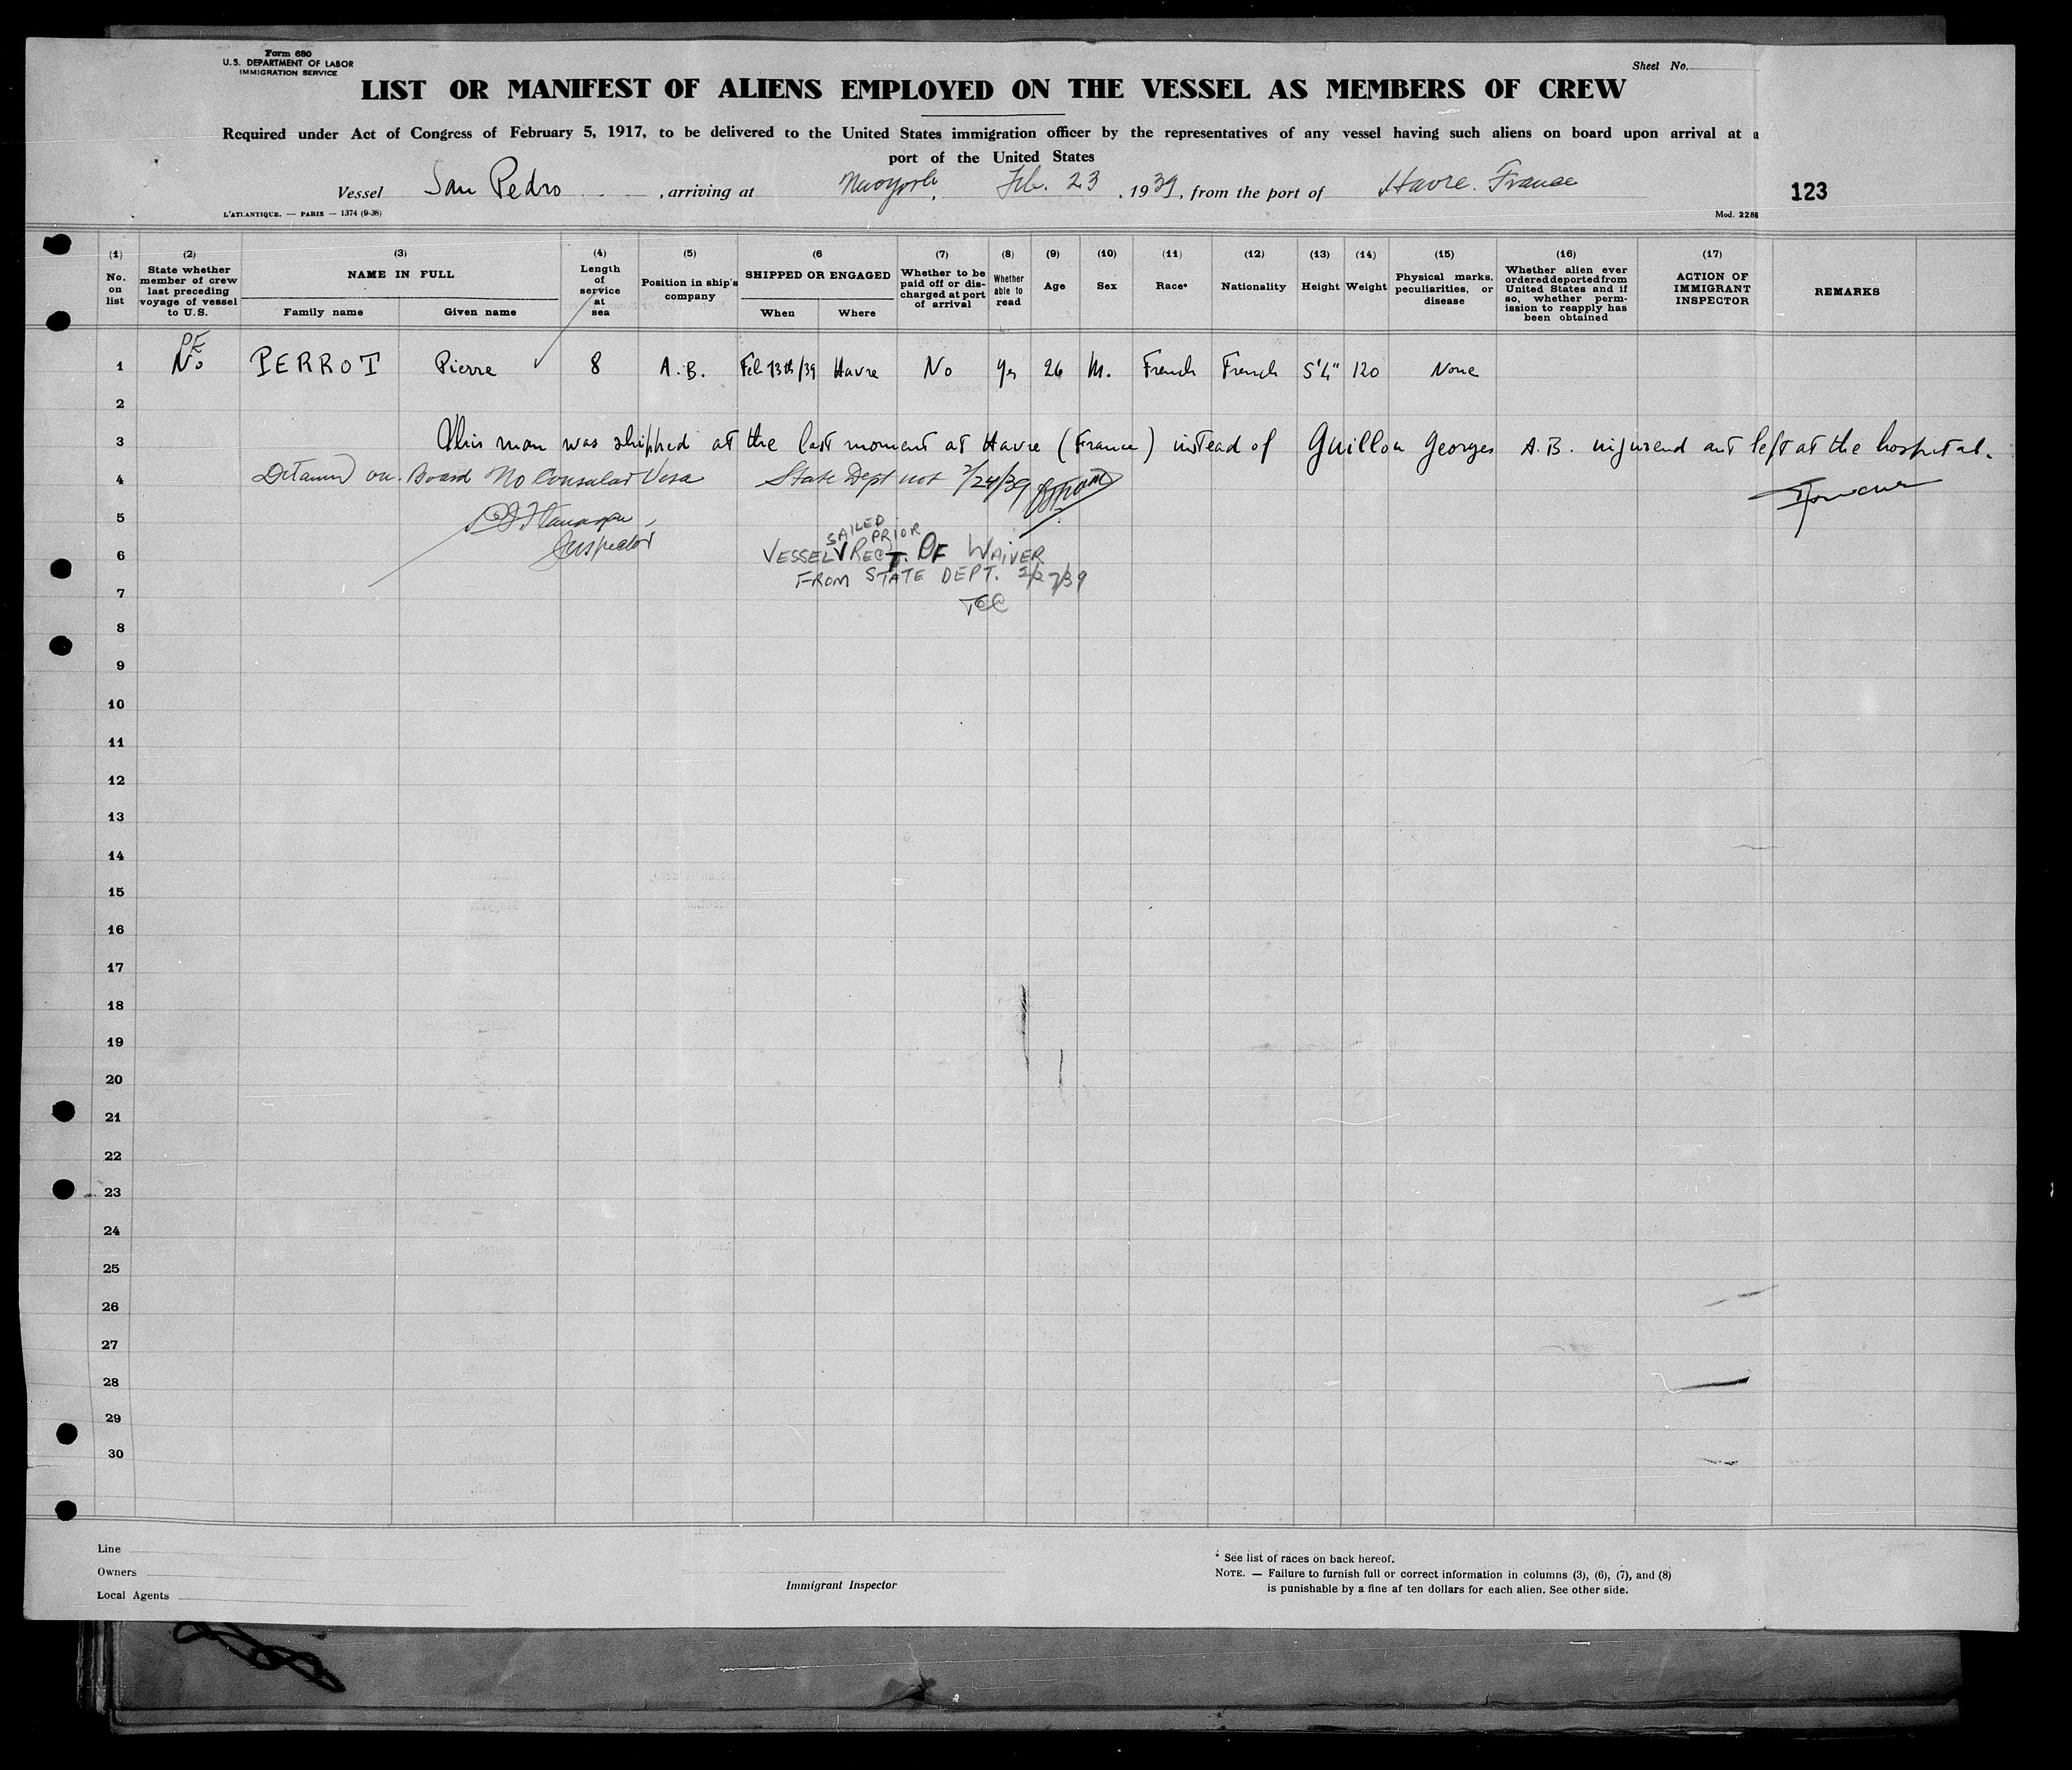 Form 680
U.S. DEPARTMENT OF LABOR
IMMIGRATION SERVICE
Sheet No.
LIST OR MANIFEST OF ALIENS EMPLOYED ON THE VESSEL AS MEMBERS OF CREW
Required under Act of Congress of February 5, 1917, to be delivered to the United States immigration officer by the representatives of any vessel having such aliens on board upon arrival at a
port of the United States
Vessel San Pedro, arriving at New york, Feb. 23, 1939, from the port of Havre. France
123
L'ATLANTIQUE. — PARIS — 1374 (9-38)
Mod. 2286
(1) No. on list
(2) State whether member of crew last preceding voyage of vessel to U.S.
(3) NAME IN FULL
Family name Given name
(4) Length of service at sea
(5) Position in ship's company
(6 SHIPPED OR ENGAGED
When Where
(7) Whether to be paid off or discharged at port of arrival
(8) Whether able to read
(9) Age
(10) Sex
(11) Race*
(12) Nationality
(13) Height
(14) Weight
(15) Physical marks, peculiarities, or disease
(16) Whether alien ever ordered deported from United States and if so, whether permission to reapply has been obtained
(17) ACTION OF IMMIGRANT INSPECTOR
REMARKS
PF
1 No PERROT Pierre 8 A.B. Feb 13th/39 Havre No Yes 26 M. French French 5'4" 120 None
2
3 This man was shipped at the last moment at Havre (France) instead of Guillou Georges A.B. injurend ant left at the hospital.
4 Detained on Board No Consular Visa State Dept not 2/24/39
5
Inspector
SAILED PRIOR
6 VESSEL V RECT. OF WAIVER
FROM STATE DEPT. 2/27/39
7
TCC
8
9
10
11
12
13
14
15
16
17
18
19
20
21
22
23
24
25
26
27
28
29
30
Line
Owners
Local Agents
Immigrant Inspector
* See list of races on back hereof.
NOTE. — Failure to furnish full or correct information in columns (3), (6), (7), and (8)
is punishable by a fine af ten dollars for each alien. See other side.